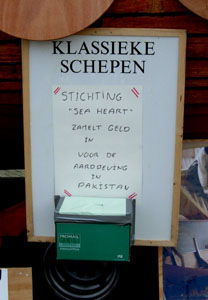 KLASSIEKE
SCHEPEN
STICHTING
"SEA HEART"
ZAMELT GELD
IN
VOOR DE
AARDBEVING
IN
PAKISTAN